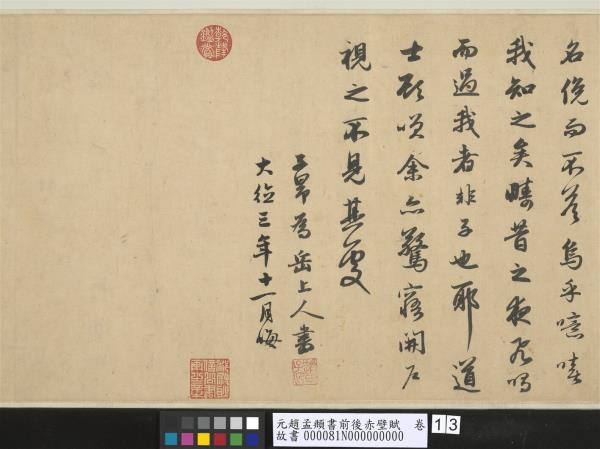 名俛而不荅烏乎噫嘻
我知之矣疇昔之夜飛鳴
而過我者非子也耶道
士顧咲余亦驚寤開戶
視之不見其處
子昂為岳上人書
大德三年十一月晦
元趙孟頫書前後赤壁賦 卷 13
故書 000081N000000000